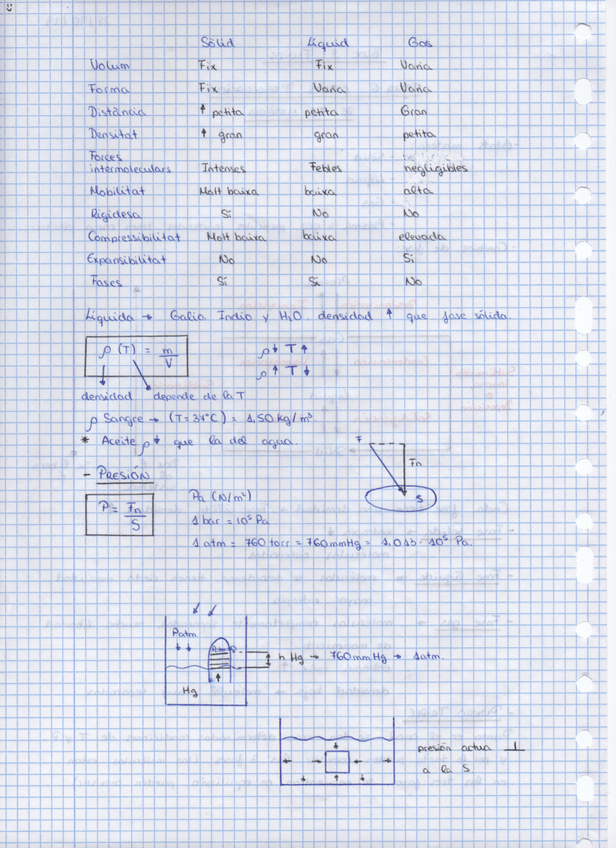 Sòlid Líquid Gas
Volum Fix Fix Varia
Forma Fix Varia Varia
Distància ↑ petita petita Gran
Densitat ↑ gran gran petita
Forces
intermoleculars Intenses Febles negligibles
Mobilitat Molt baixa baixa alta
Rigidesa Sí No No
Compressibilitat Molt baixa baixa elevada
Expansibilitat No No Sí
Fases Sí Sí No
Líquida → Galia Indio y H2O. densidad ↑ que fase sólida.
ρ (T) = m/V ρ↓ T↑
ρ↑ T↓
densidad depende de la T
ρ Sangre → (T=37°C) = 1.50 kg/m³
* Aceite ρ↓ que la del agua.
F Fn S
- PRESIÓN
P = Fn/S
Pa (N/m²)
1 bar = 10⁵ Pa
1 atm = 760 torr = 760 mmHg = 1.013 · 10⁵ Pa.
Patm
h Hg → 760 mmHg → 1 atm.
Hg
presión actua ⊥
a la S